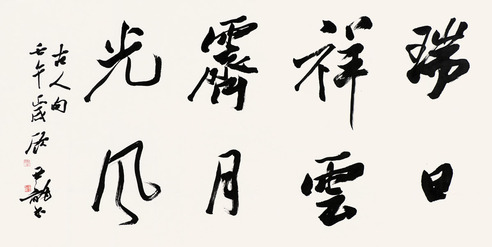 瑞日
祥雲
霽月
光風
古人句
壬午歲